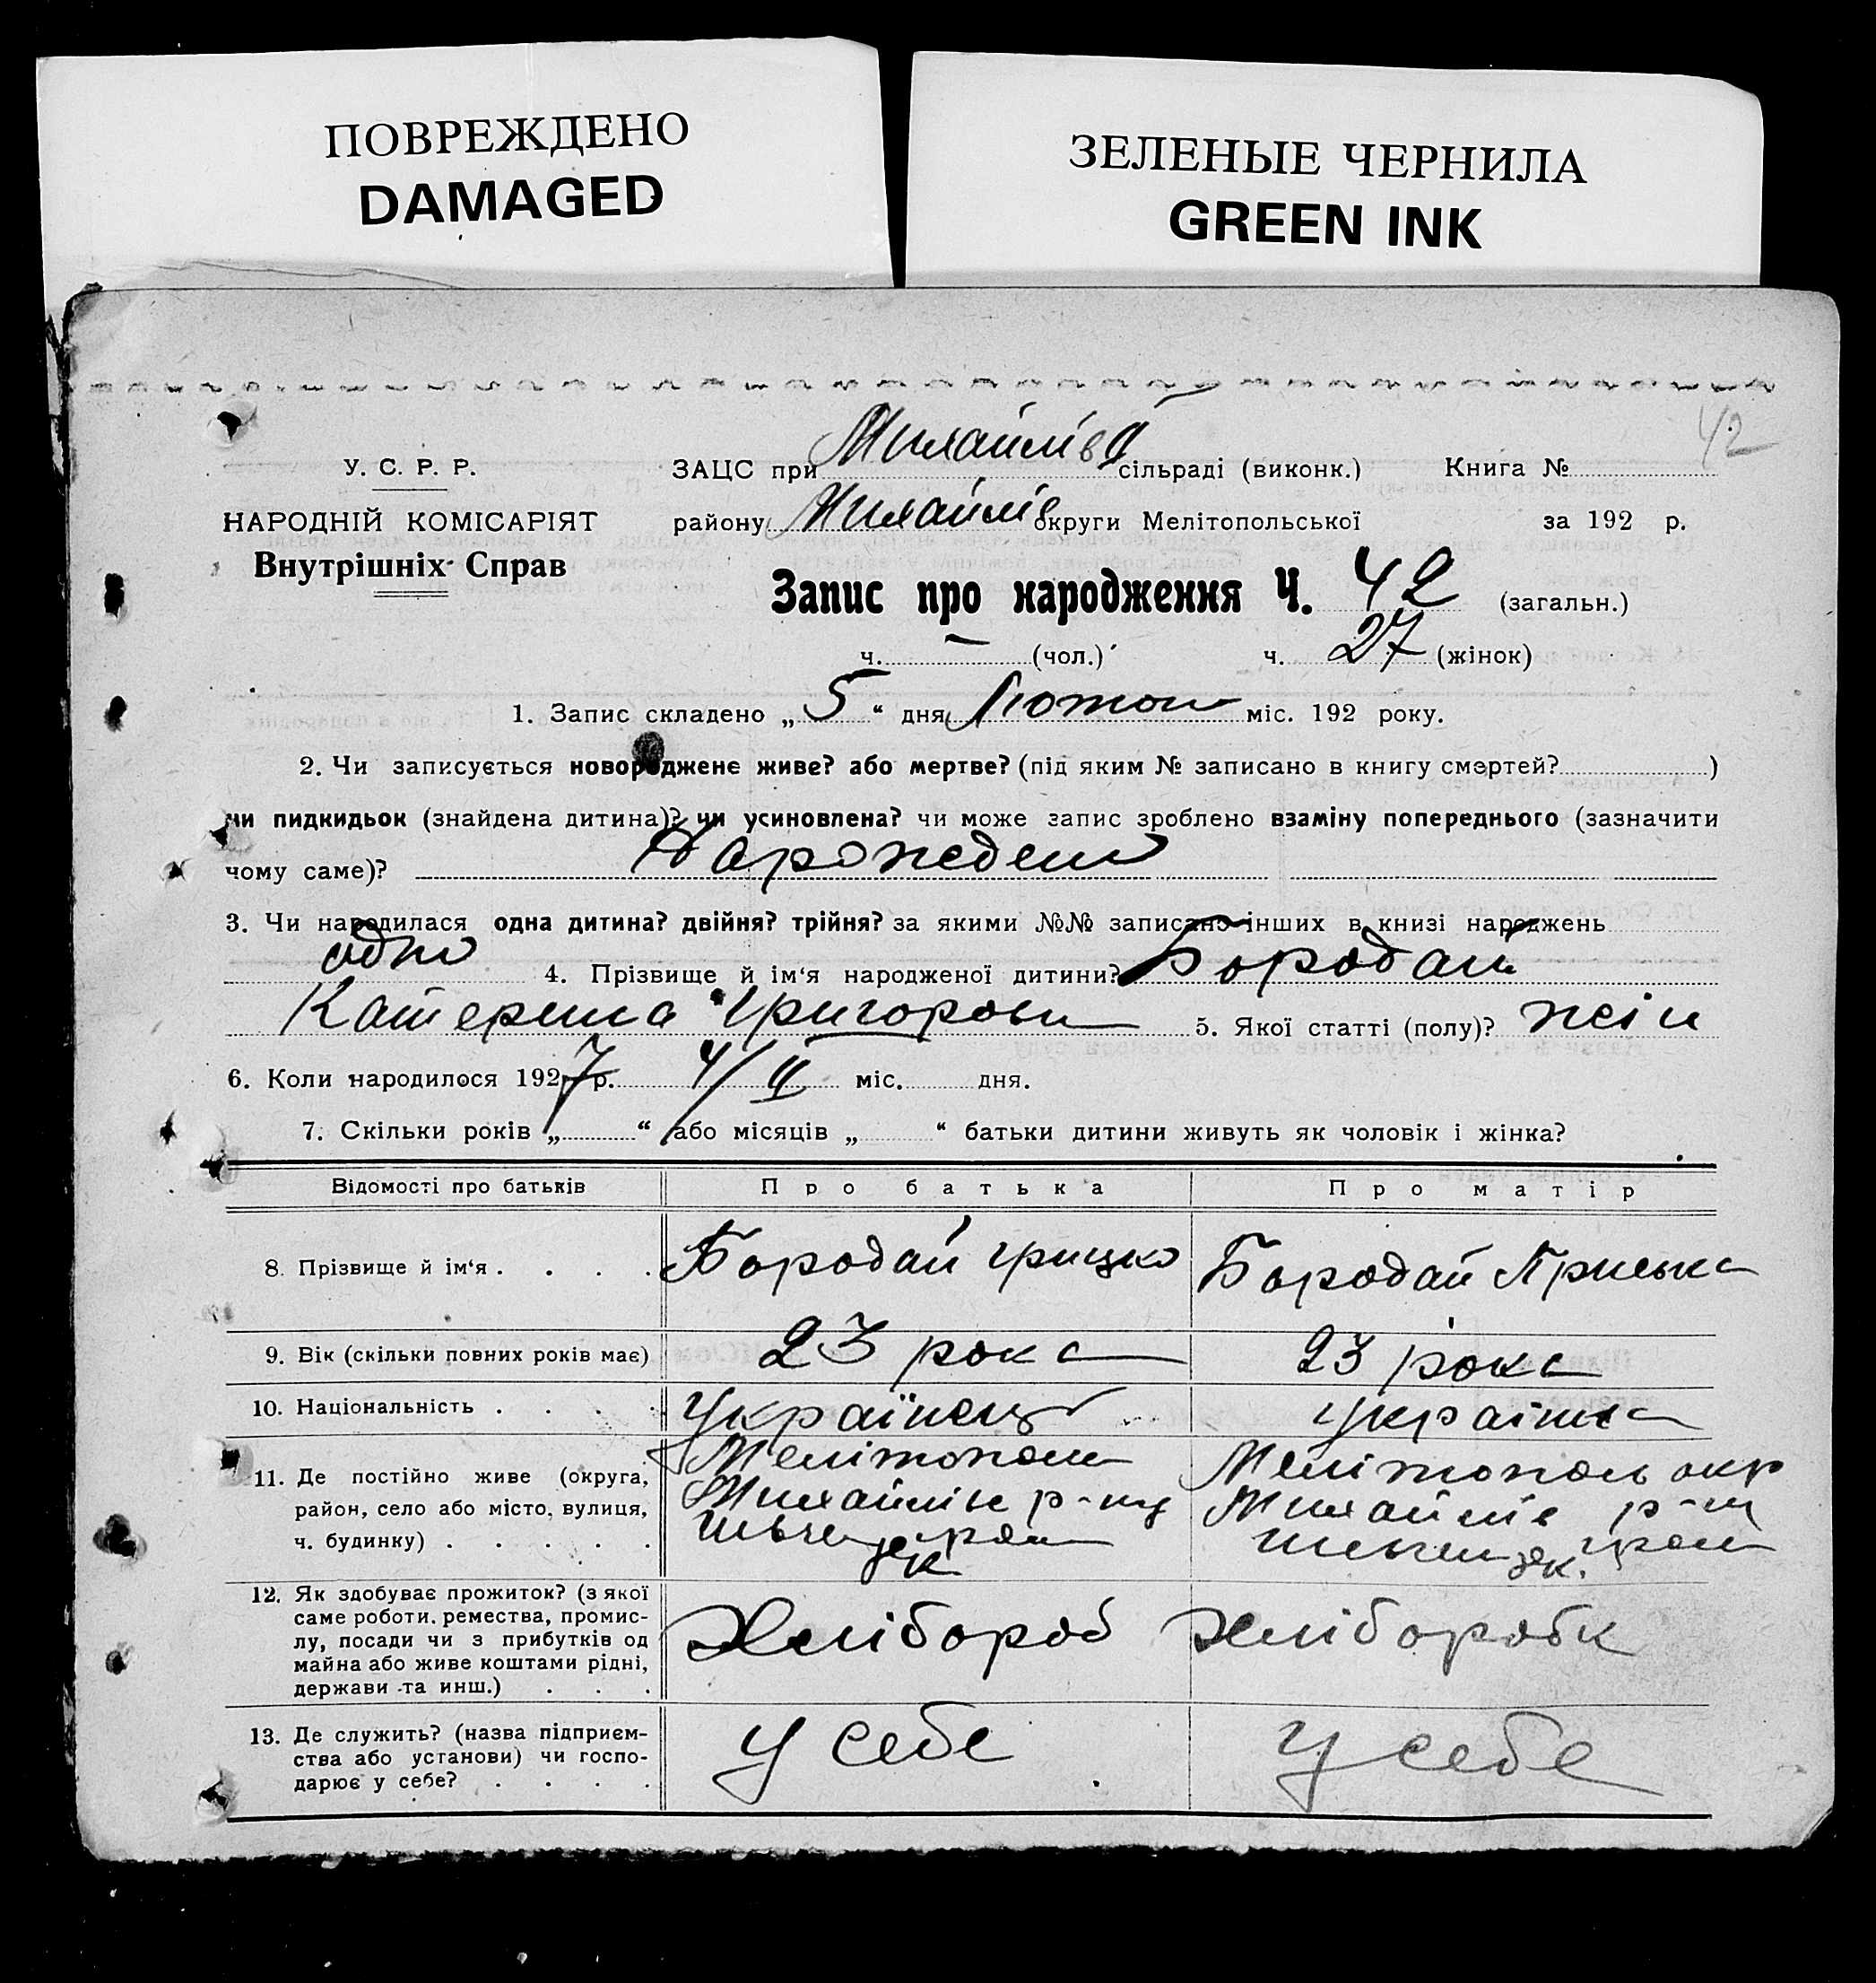 ПОВРЕЖДЕНО
DAMAGED
ЗЕЛЕНЫЕ ЧЕРНИЛА
GREEN INK
42
У. С. Р. Р.
НАРОДНІЙ КОМІСАРІЯТ
Внутрішніх Справ
ЗАЦС при Михайлів сільраді (виконк.) Книга №
району Михайлів округи Мелітопольської за 192 р.
Запис про народження Ч. 42 (загальн.)
ч. — (чол.) ч. 27 (жінок)
1. Запис складено „ 5 “ дня Лютого міс. 192 року.
2. Чи записується новороджене живе? або мертве? (під яким № записано в книгу смертей? )
чи пидкидьок (знайдена дитина)? чи усиновлена? чи може запис зроблено взаміну попереднього (зазначити
чому саме)?
3. Чи народилася одна дитина? двійня? трійня? за якими №№ записано інших в книзі народжень
одно 4. Прізвище й ім‘я народженої дитини? Бородай
Катерина Григоровн 5. Якої статті (полу)? жін
6. Коли народилося 1927 р. 4/II міс. дня.
7. Скільки років „ “ або місяців „ “ батьки дитини живуть як чоловік і жінка?
Відомості про батьків Про батька Про матір
8. Прізвище й ім‘я . . . . Бородай Грицко Бородай Приська
9. Вік (скільки повних років має) 23 рока 23 рока
10. Національність . . . . Українець українка
11. Де постійно живе (округа, Мелітополь Мелітополь окр
район, село або місто, вулиця, Михайлів р-ну Михайлів р-н
ч. будинку) . . . . .
12. Як здобуває прожиток? (з якої
саме роботи. ремества, промис-
лу, посади чи з прибутків од Хлібороб хліборобк
майна або живе коштами рідні,
держави та инш.) . . .
13. Де служить? (назва підприєм-
ства або установи) чи госпо- у себе у себе
дарює у себе? . . . .